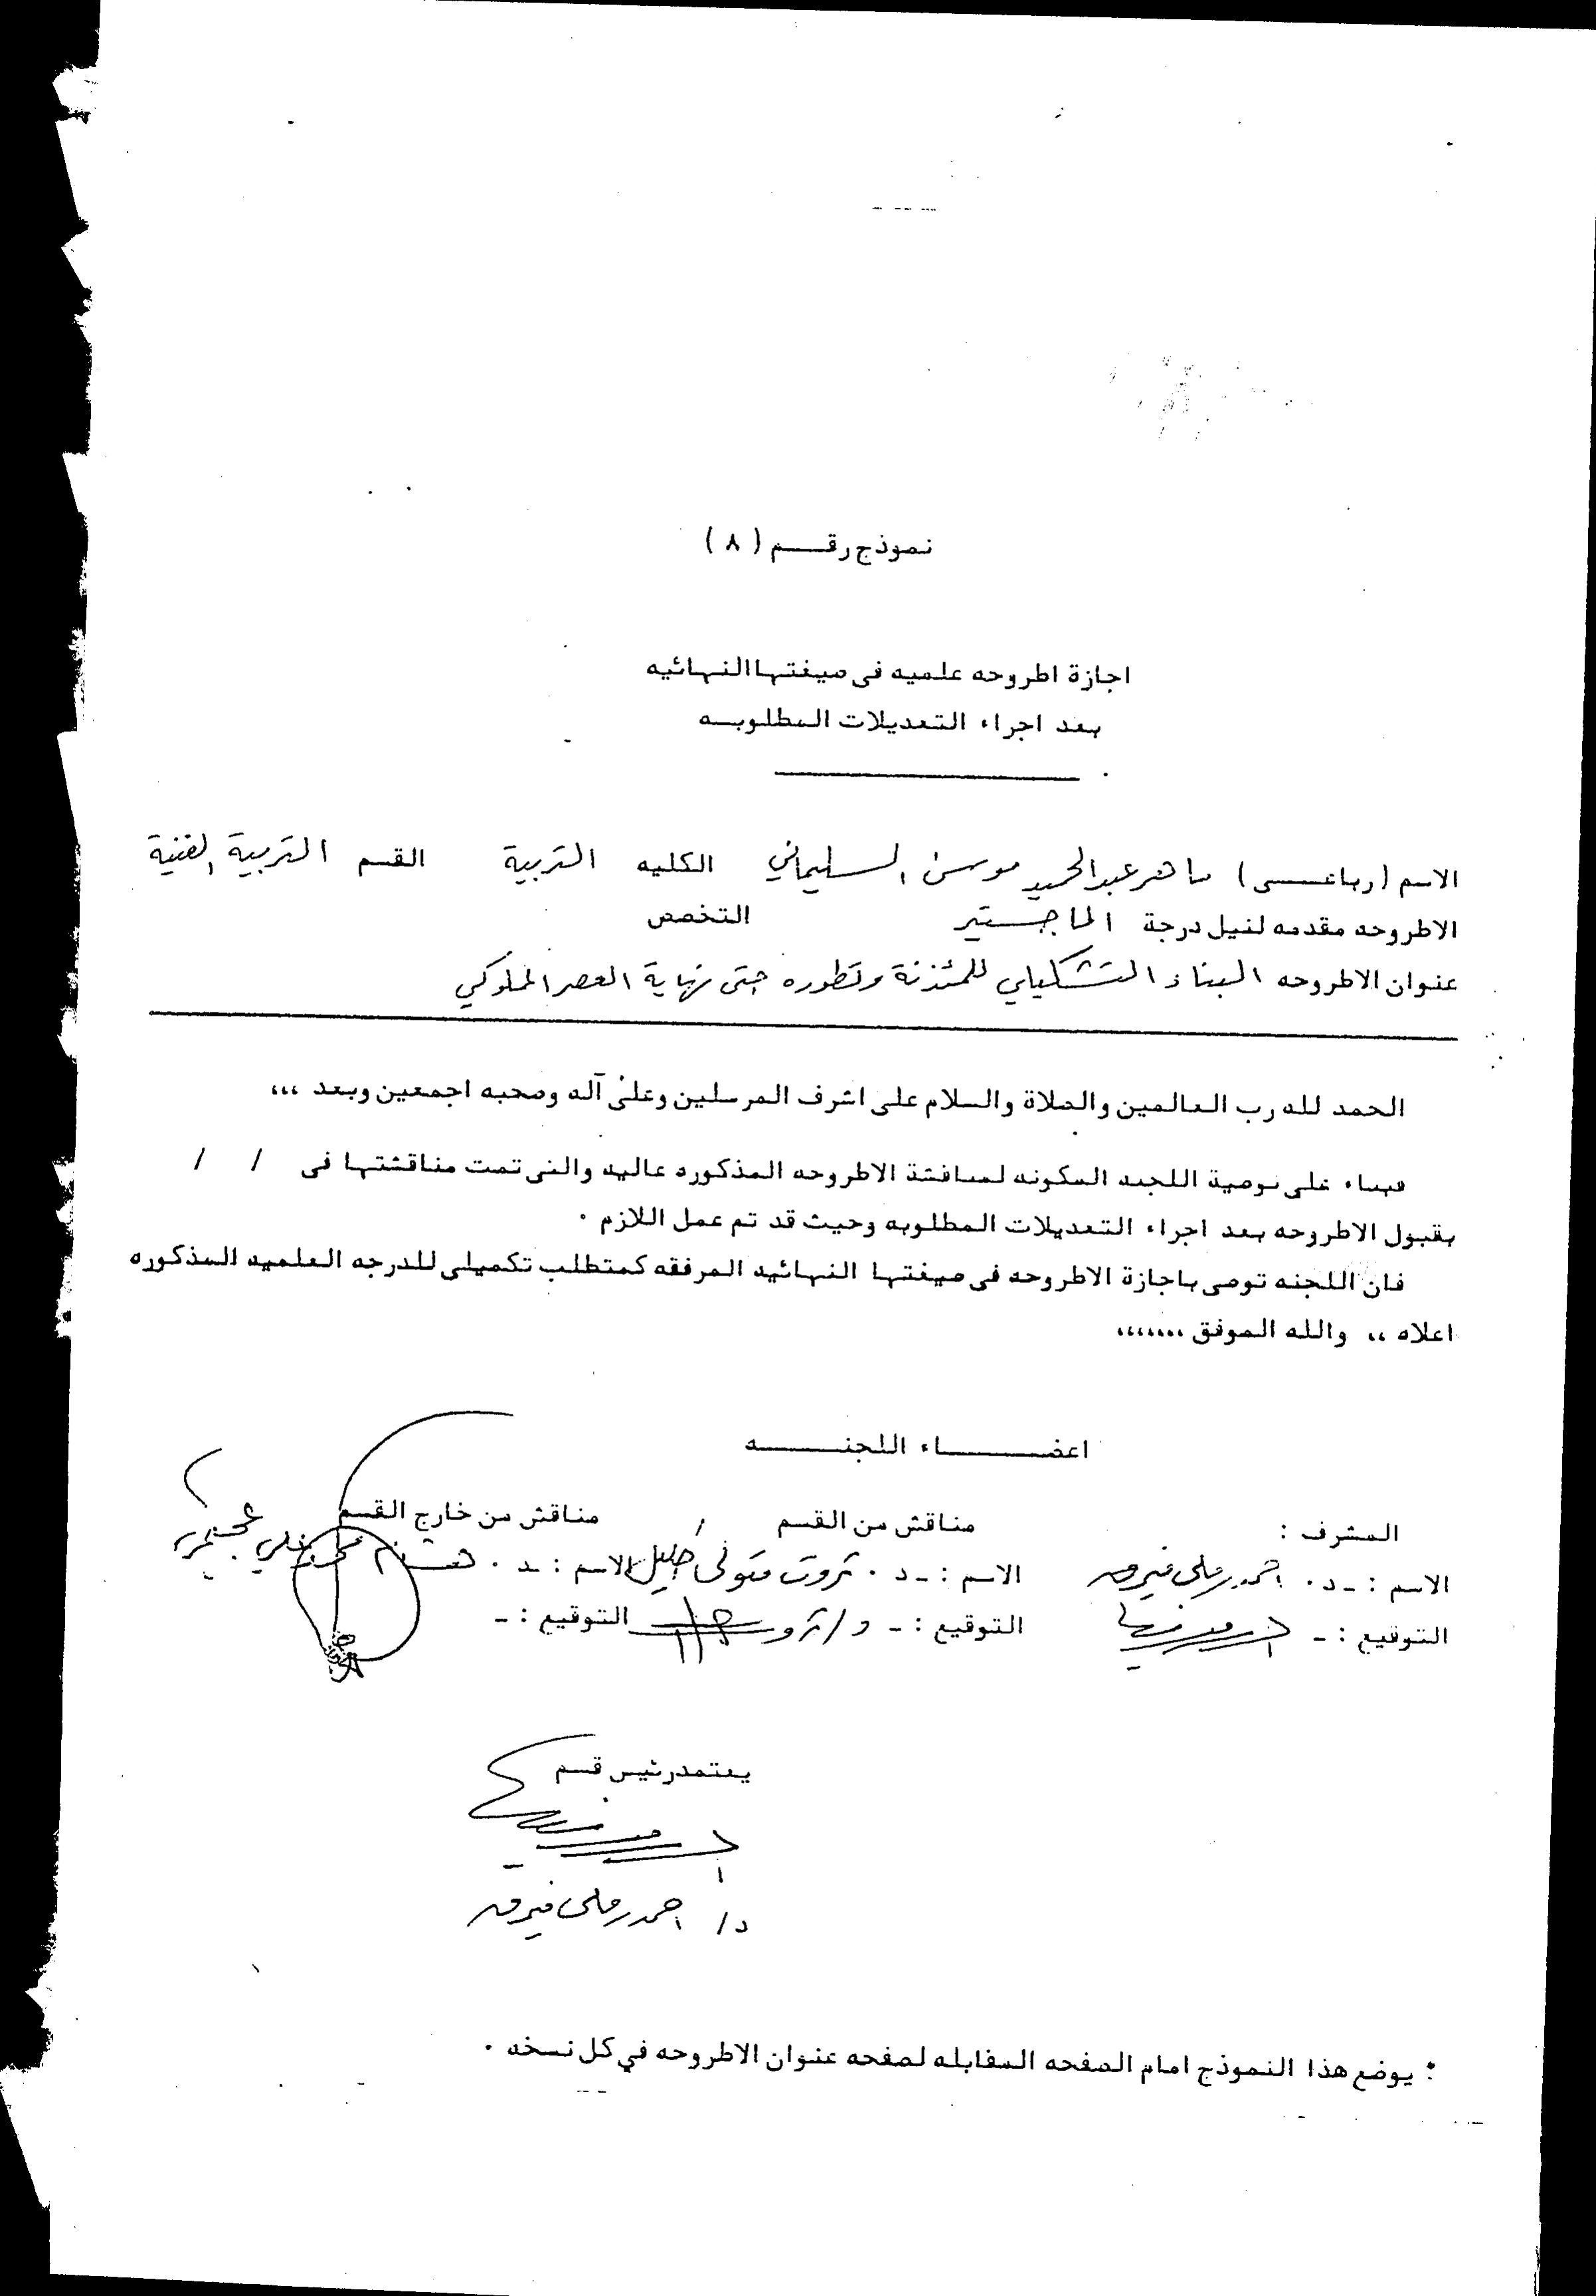 نموذج رقم ( ٨ )
اجازة اطروحه علميه فى صيغتها النهائيه
بعد اجراء التعديلات المطلوبه
الاسم ( رباعى ) ماهر عبدالحميد موسى السليماني الكليه التربية القسم التربية الفنية
الاطروحه مقدمه لنيل درجة الماجستير التخصص
عنوان الاطروحه البناء التشكيلي للمئذنة وتطوره حتى نهاية العصر المملوكي
الحمد لله رب العالمين والصلاة والسلام على اشرف المرسلين وعلى آله وصحبه اجمعين وبعد ،،،
فبناء على توصية اللجنه المكونه لمناقشة الاطروحه المذكوره عاليه والتى تمت مناقشتها فى / /
بقبول الاطروحه بعد اجراء التعديلات المطلوبه وحيث قد تم عمل اللازم .
فان اللجنه توصى باجازة الاطروحه فى صيغتها النهائيه المرفقه كمتطلب تكميلى للدرجه العلميه المذكوره
اعلاه ،، والله الموفق ،،،،،،،
اعضاء اللجنه
المشرف : مناقش من القسم مناقش من خارج القسم
الاسم :ـ د . احمد الاسم :ـ د . ثروت متولى خليل الاسم :ـ د . هشام محمد علي عجيمي
التوقيع :ـ التوقيع :ـ التوقيع :ـ
يعتمد رئيس قسم
د/ احمد
: يوضع هذا النموذج امام الصفحه المقابله لصفحه عنوان الاطروحه في كل نسخه .